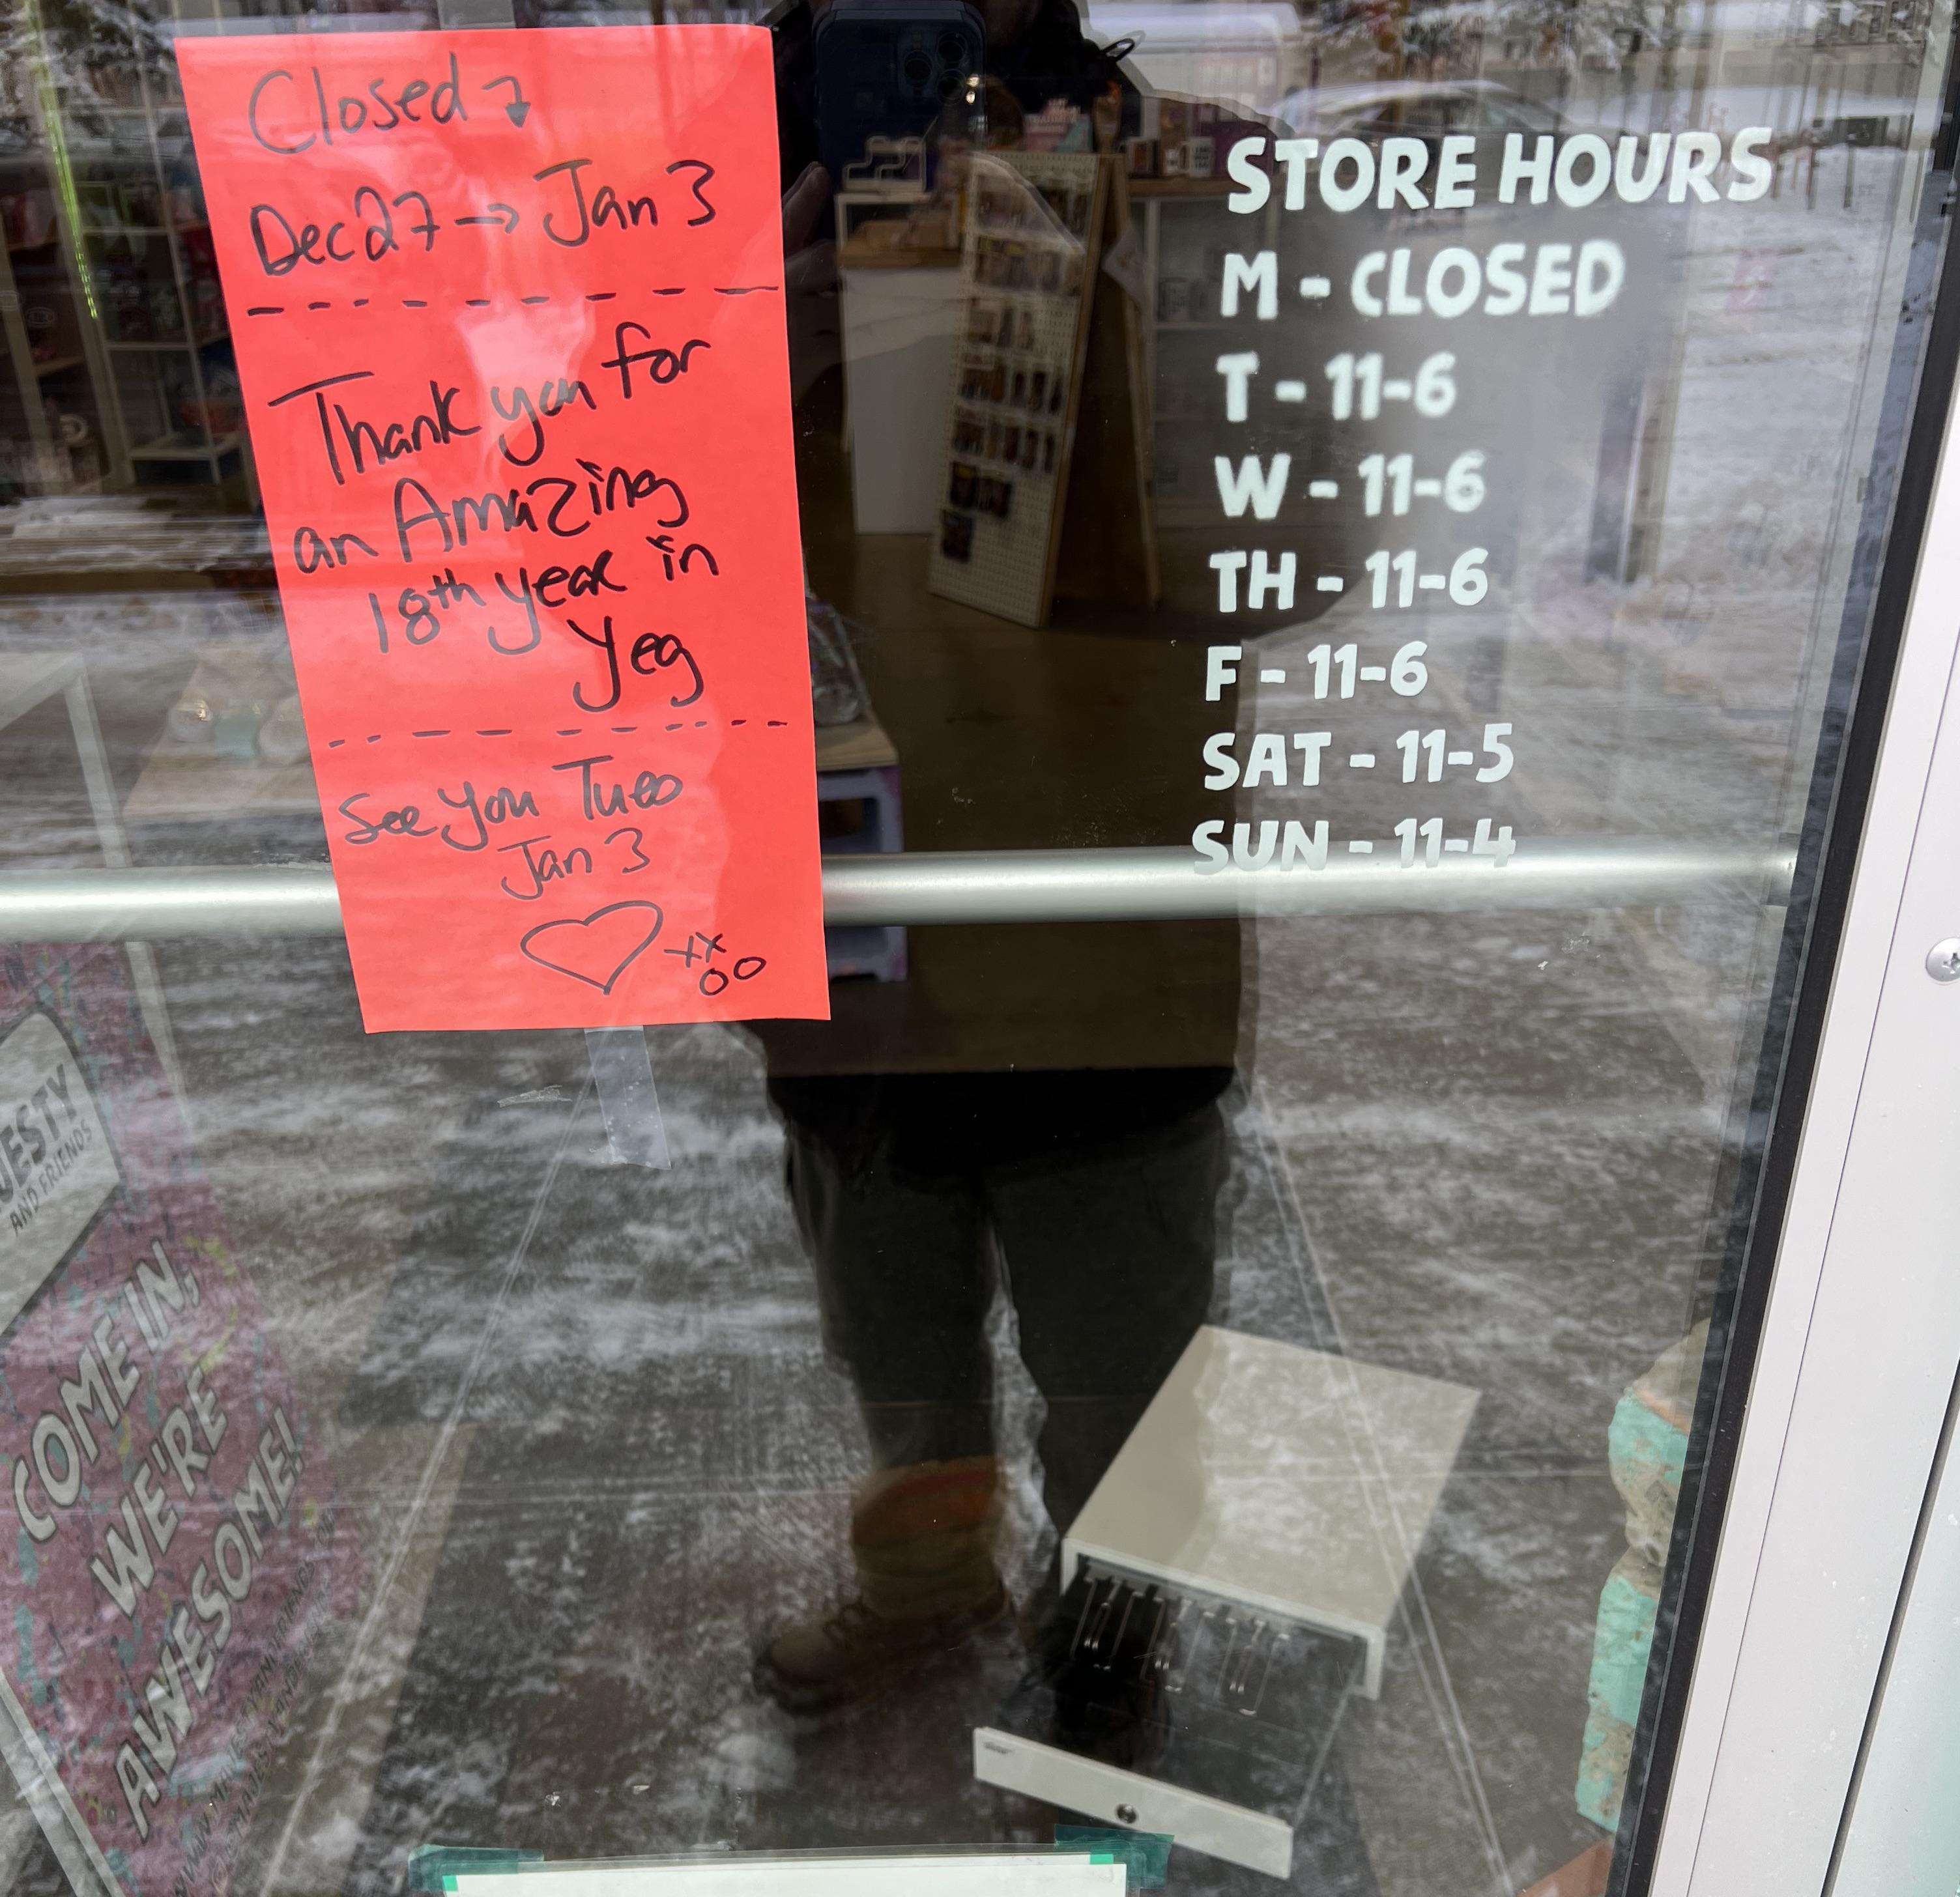 Closed
Dec 27 → Jan 3
Thank you for
an Amazing
18th year in
Yeg
See you Tues
Jan 3
xx
oo
STORE HOURS
M - CLOSED
T - 11-6
W - 11-6
TH - 11-6
F - 11-6
SAT - 11-5
SUN - 11-4
AND FRIENDS
COME IN,
WE'RE
AWESOME!